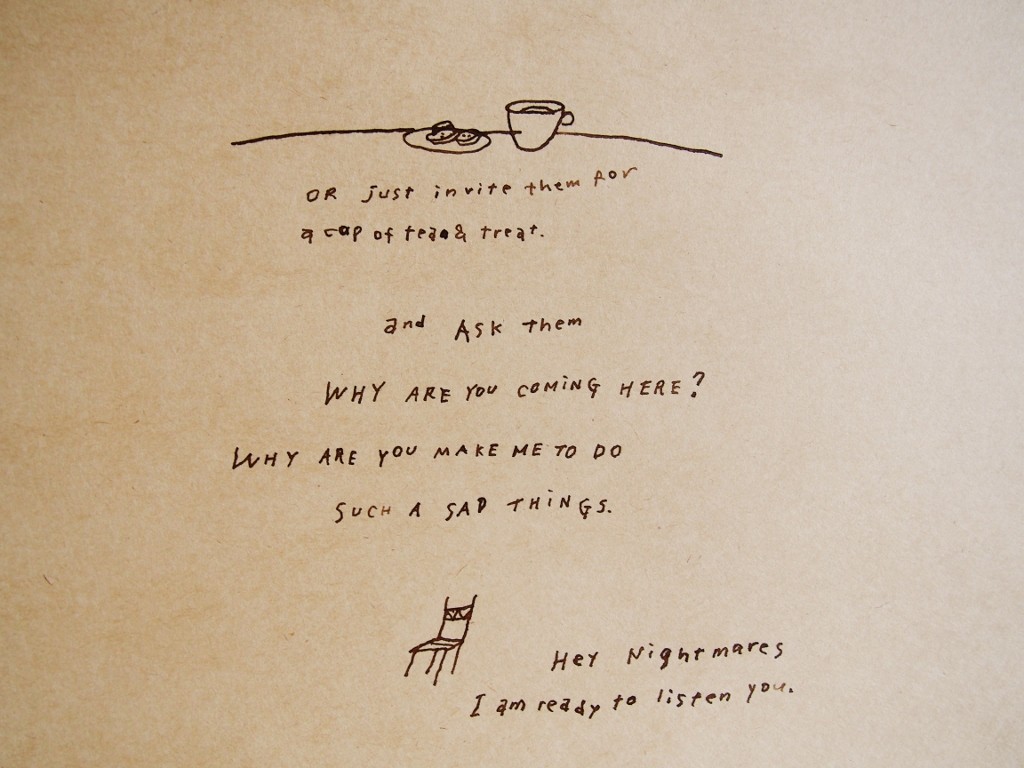 OR just invite them for
a cup of tea & treat.
and Ask them
WHY ARE YOU COMING HERE?
WHY ARE YOU MAKE ME TO DO
SUCH A SAD THINGS.
Hey Nightmares
I am ready to listen you.